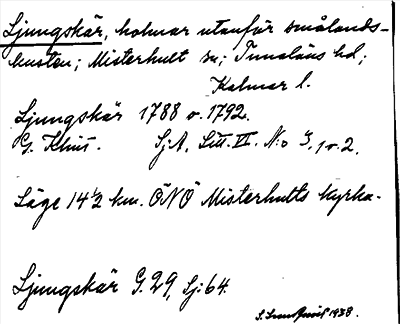 Ljungskär, holmar utanför smålands-
kusten; Misterhult sn; Tunaläns hd;
Kalmar l.
Ljungskär 1788 o. 1792.
G. Klint. SjA. Litt. VI. N:o 3, 1 o. 2.
Läge 14½ km. ÖNÖ Misterhults kyrka.
Ljungskär G. 29, Sj: 64.
1938.